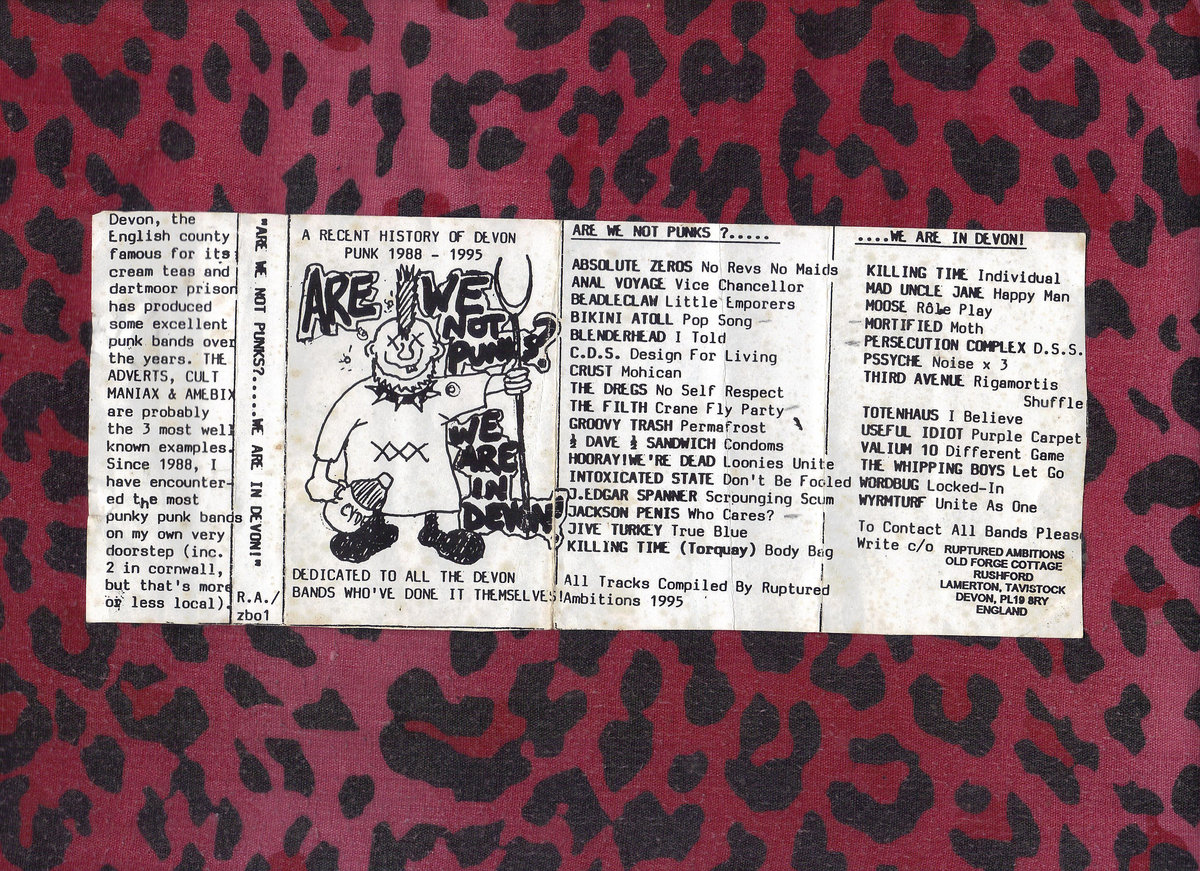 Devon, the
English county
famous for its
cream teas and
dartmoor prison
has produced
some excellent
punk bands over
the years. THE
ADVERTS, CULT
MANIAX & AMEBIX
are probably
the 3 most well
known examples.
Since 1988, I
have encounter-
ed the most
punky punk bands
on my own very
doorstep (inc.
2 in cornwall,
but that's more
or less local).
"ARE WE NOT PUNKS?.....WE ARE IN DEVON!"
R.A./
zbo1
A RECENT HISTORY OF DEVON
PUNK 1988 - 1995
ARE WE
NOT
PUNKS?
WE
ARE
IN
DEVON!
CYDER
DEDICATED TO ALL THE DEVON
BANDS WHO'VE DONE IT THEMSELVES!
ARE WE NOT PUNKS ?.....
ABSOLUTE ZEROS No Revs No Maids
ANAL VOYAGE Vice Chancellor
BEADLECLAW Little Emporers
BIKINI ATOLL Pop Song
BLENDERHEAD I Told
C.D.S. Design For Living
CRUST Mohican
THE DREGS No Self Respect
THE FILTH Crane Fly Party
GROOVY TRASH Permafrost
½ DAVE ½ SANDWICH Condoms
HOORAY!WE'RE DEAD Loonies Unite
INTOXICATED STATE Don't Be Fooled
J.EDGAR SPANNER Scrounging Scum
JACKSON PENIS Who Cares?
JIVE TURKEY True Blue
KILLING TIME (Torquay) Body Bag
All Tracks Compiled By Ruptured
Ambitions 1995
....WE ARE IN DEVON!
KILLING TIME Individual
MAD UNCLE JANE Happy Man
MOOSE Rôle Play
MORTIFIED Moth
PERSECUTION COMPLEX D.S.S.
PSSYCHE Noise x 3
THIRD AVENUE Rigamortis
Shuffle
TOTENHAUS I Believe
USEFUL IDIOT Purple Carpet
VALIUM 10 Different Game
THE WHIPPING BOYS Let Go
WORDBUG Locked-In
WYRMTURF Unite As One
To Contact All Bands Please
Write c/o RUPTURED AMBITIONS
OLD FORGE COTTAGE
RUSHFORD
LAMERTON, TAVISTOCK
DEVON, PL19 8RY
ENGLAND